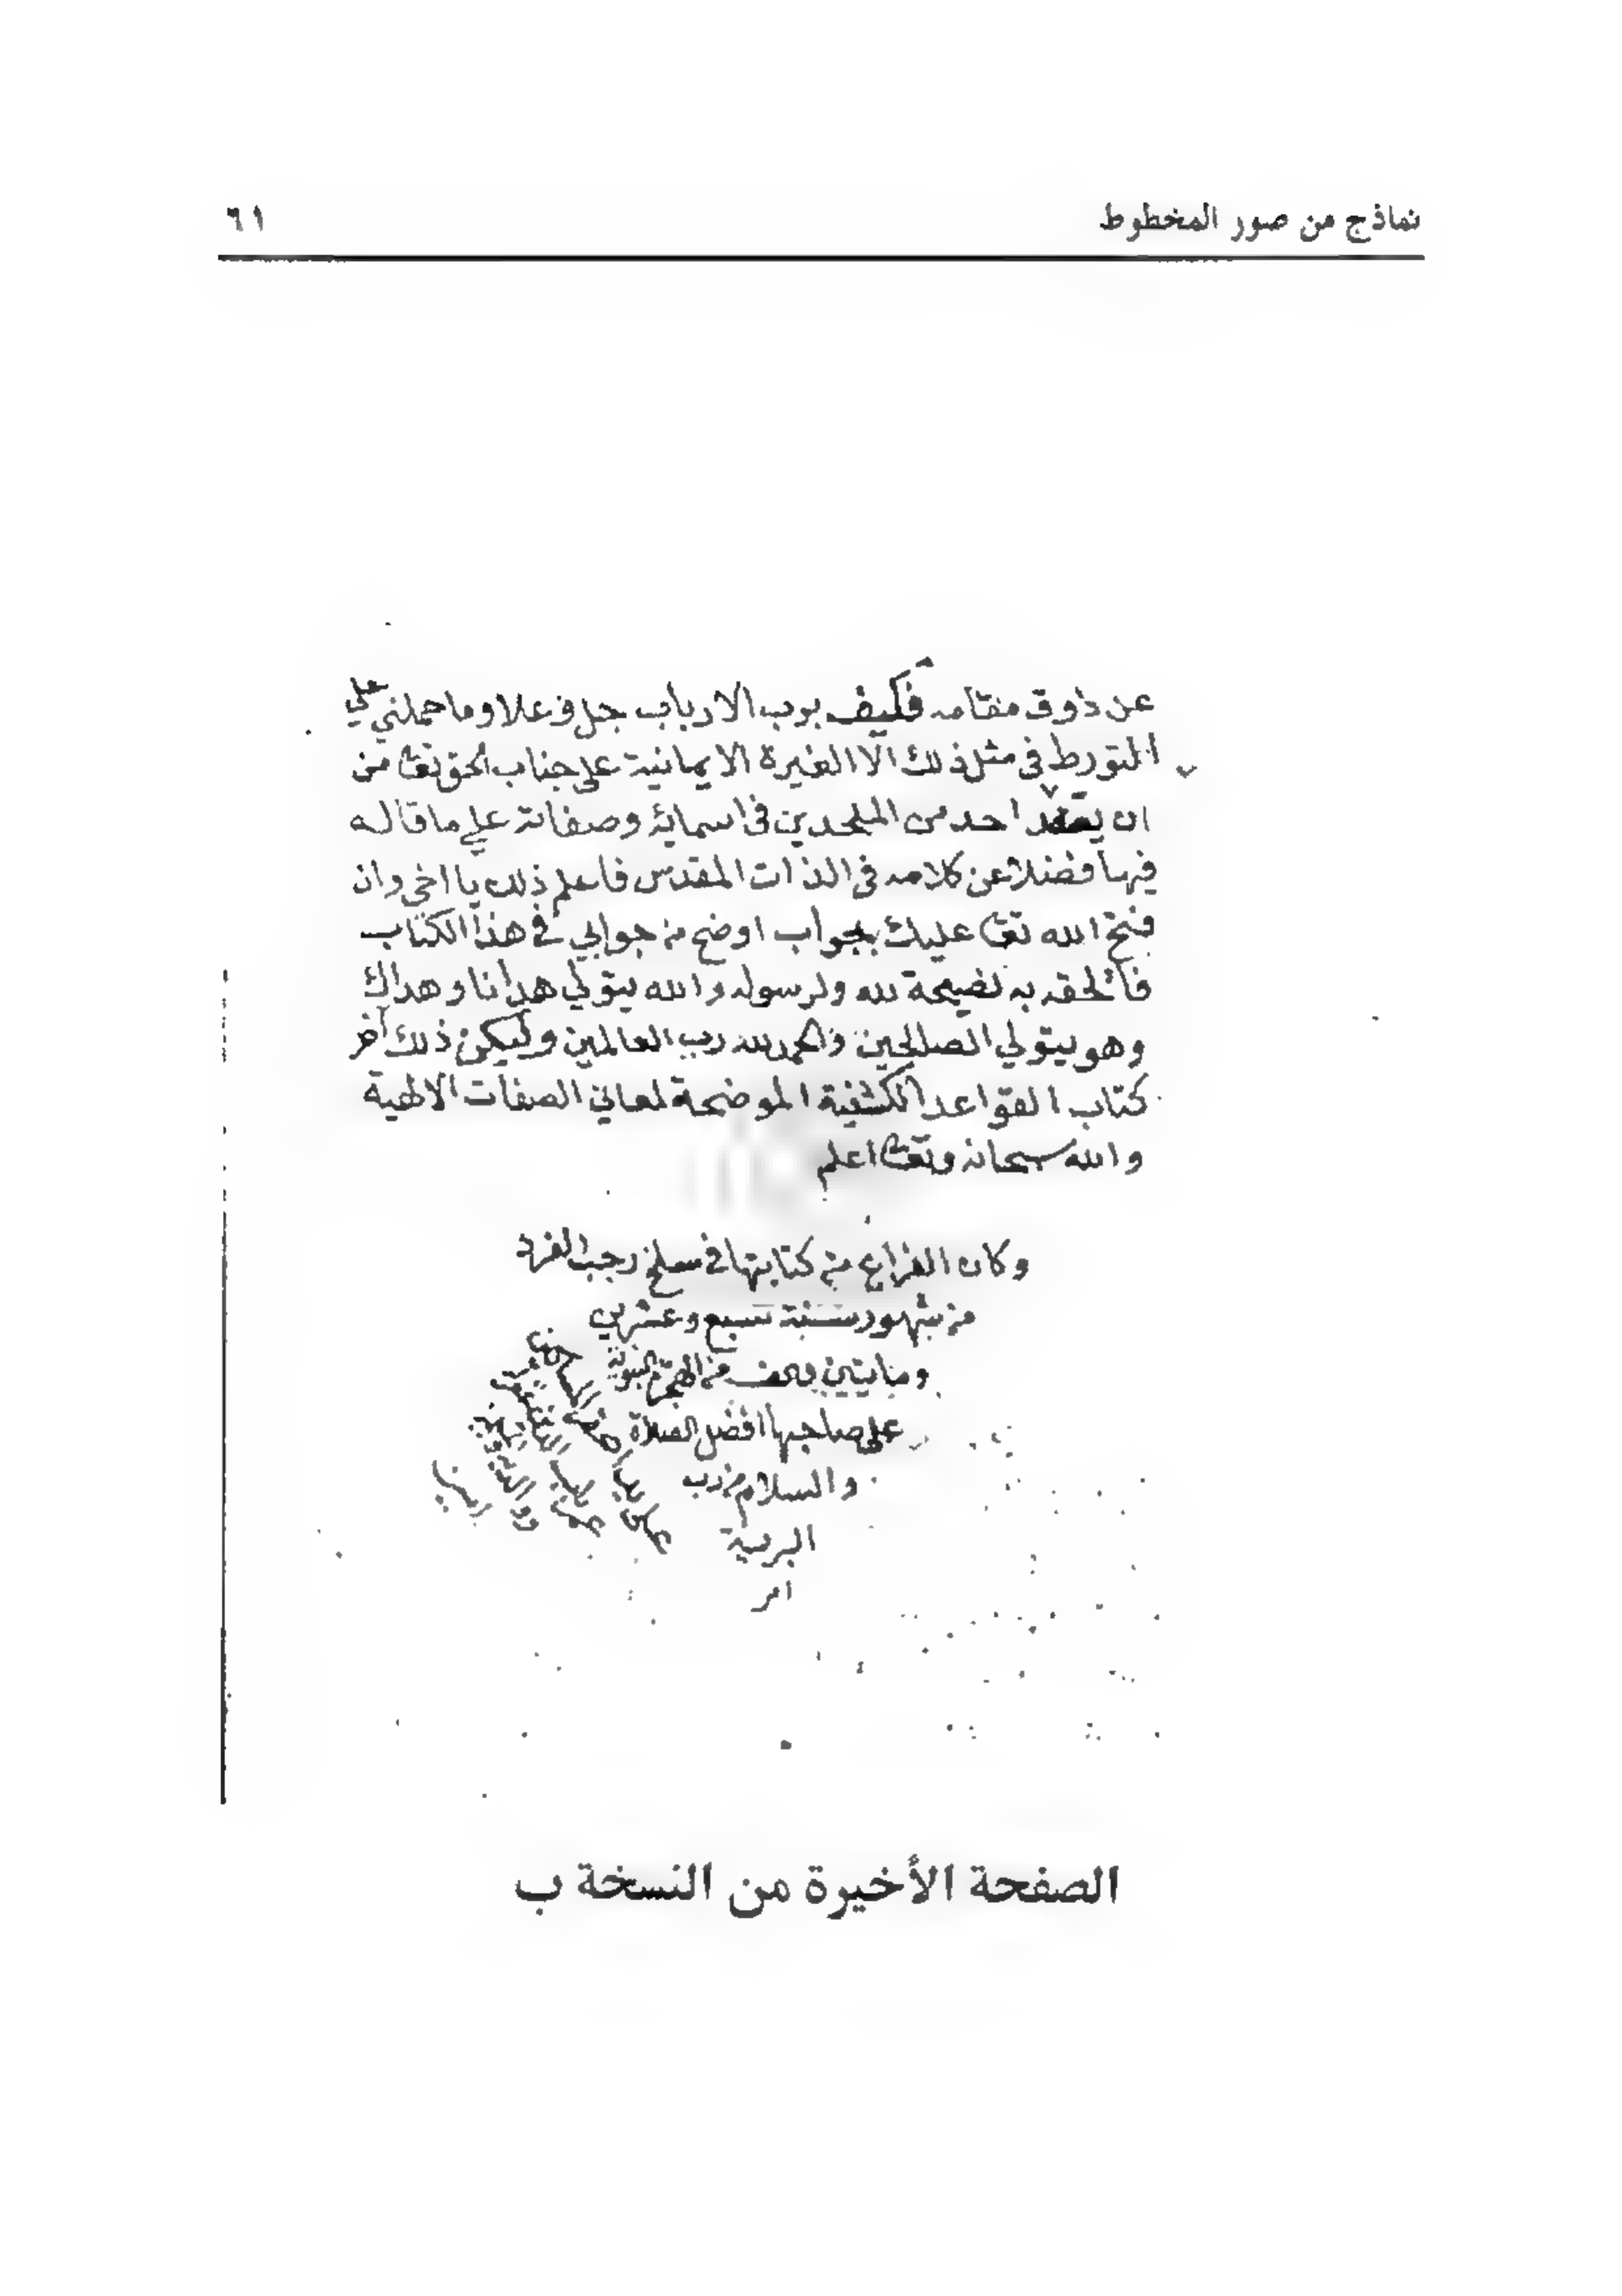 نماذج من صور المخطوط
٦١
عن ذوق مقامه فكيف برب الارباب جل وعلا وما حملني علي
التورط فى مثل ذلك الا الغيرة الايمانية على جناب الحق تعا من
ان يعتقد احد من الملحدين فى اسمائه وصفاته علي ما قاله
فيها فضلا عن كلامه فى الذات المقدس فاعلم ذلك يا اخى وان
فتح الله تعا عليك بجواب اوضح من جوابي فى هذا الكتاب
فألحقه به نصيحة لله ولرسوله والله يتولي هدانا وهداك
وهو يتولي الصالحين والحمد لله رب العالمين وليكن ذلك آخر
كتاب القواعد الكشفية الموضحة لمعاني الصفات الالهية
والله سبحانه وتعا اعلم
وكان الفراغ من كتابتها فى سلخ رجب الفرد
من شهور سنة سبع وعشرين
ومايتين والف من الهجرة النبوية
على صاحبها افضل الصلاة
والسلام من رب
البرية
الصفحة الأخيرة من النسخة ب